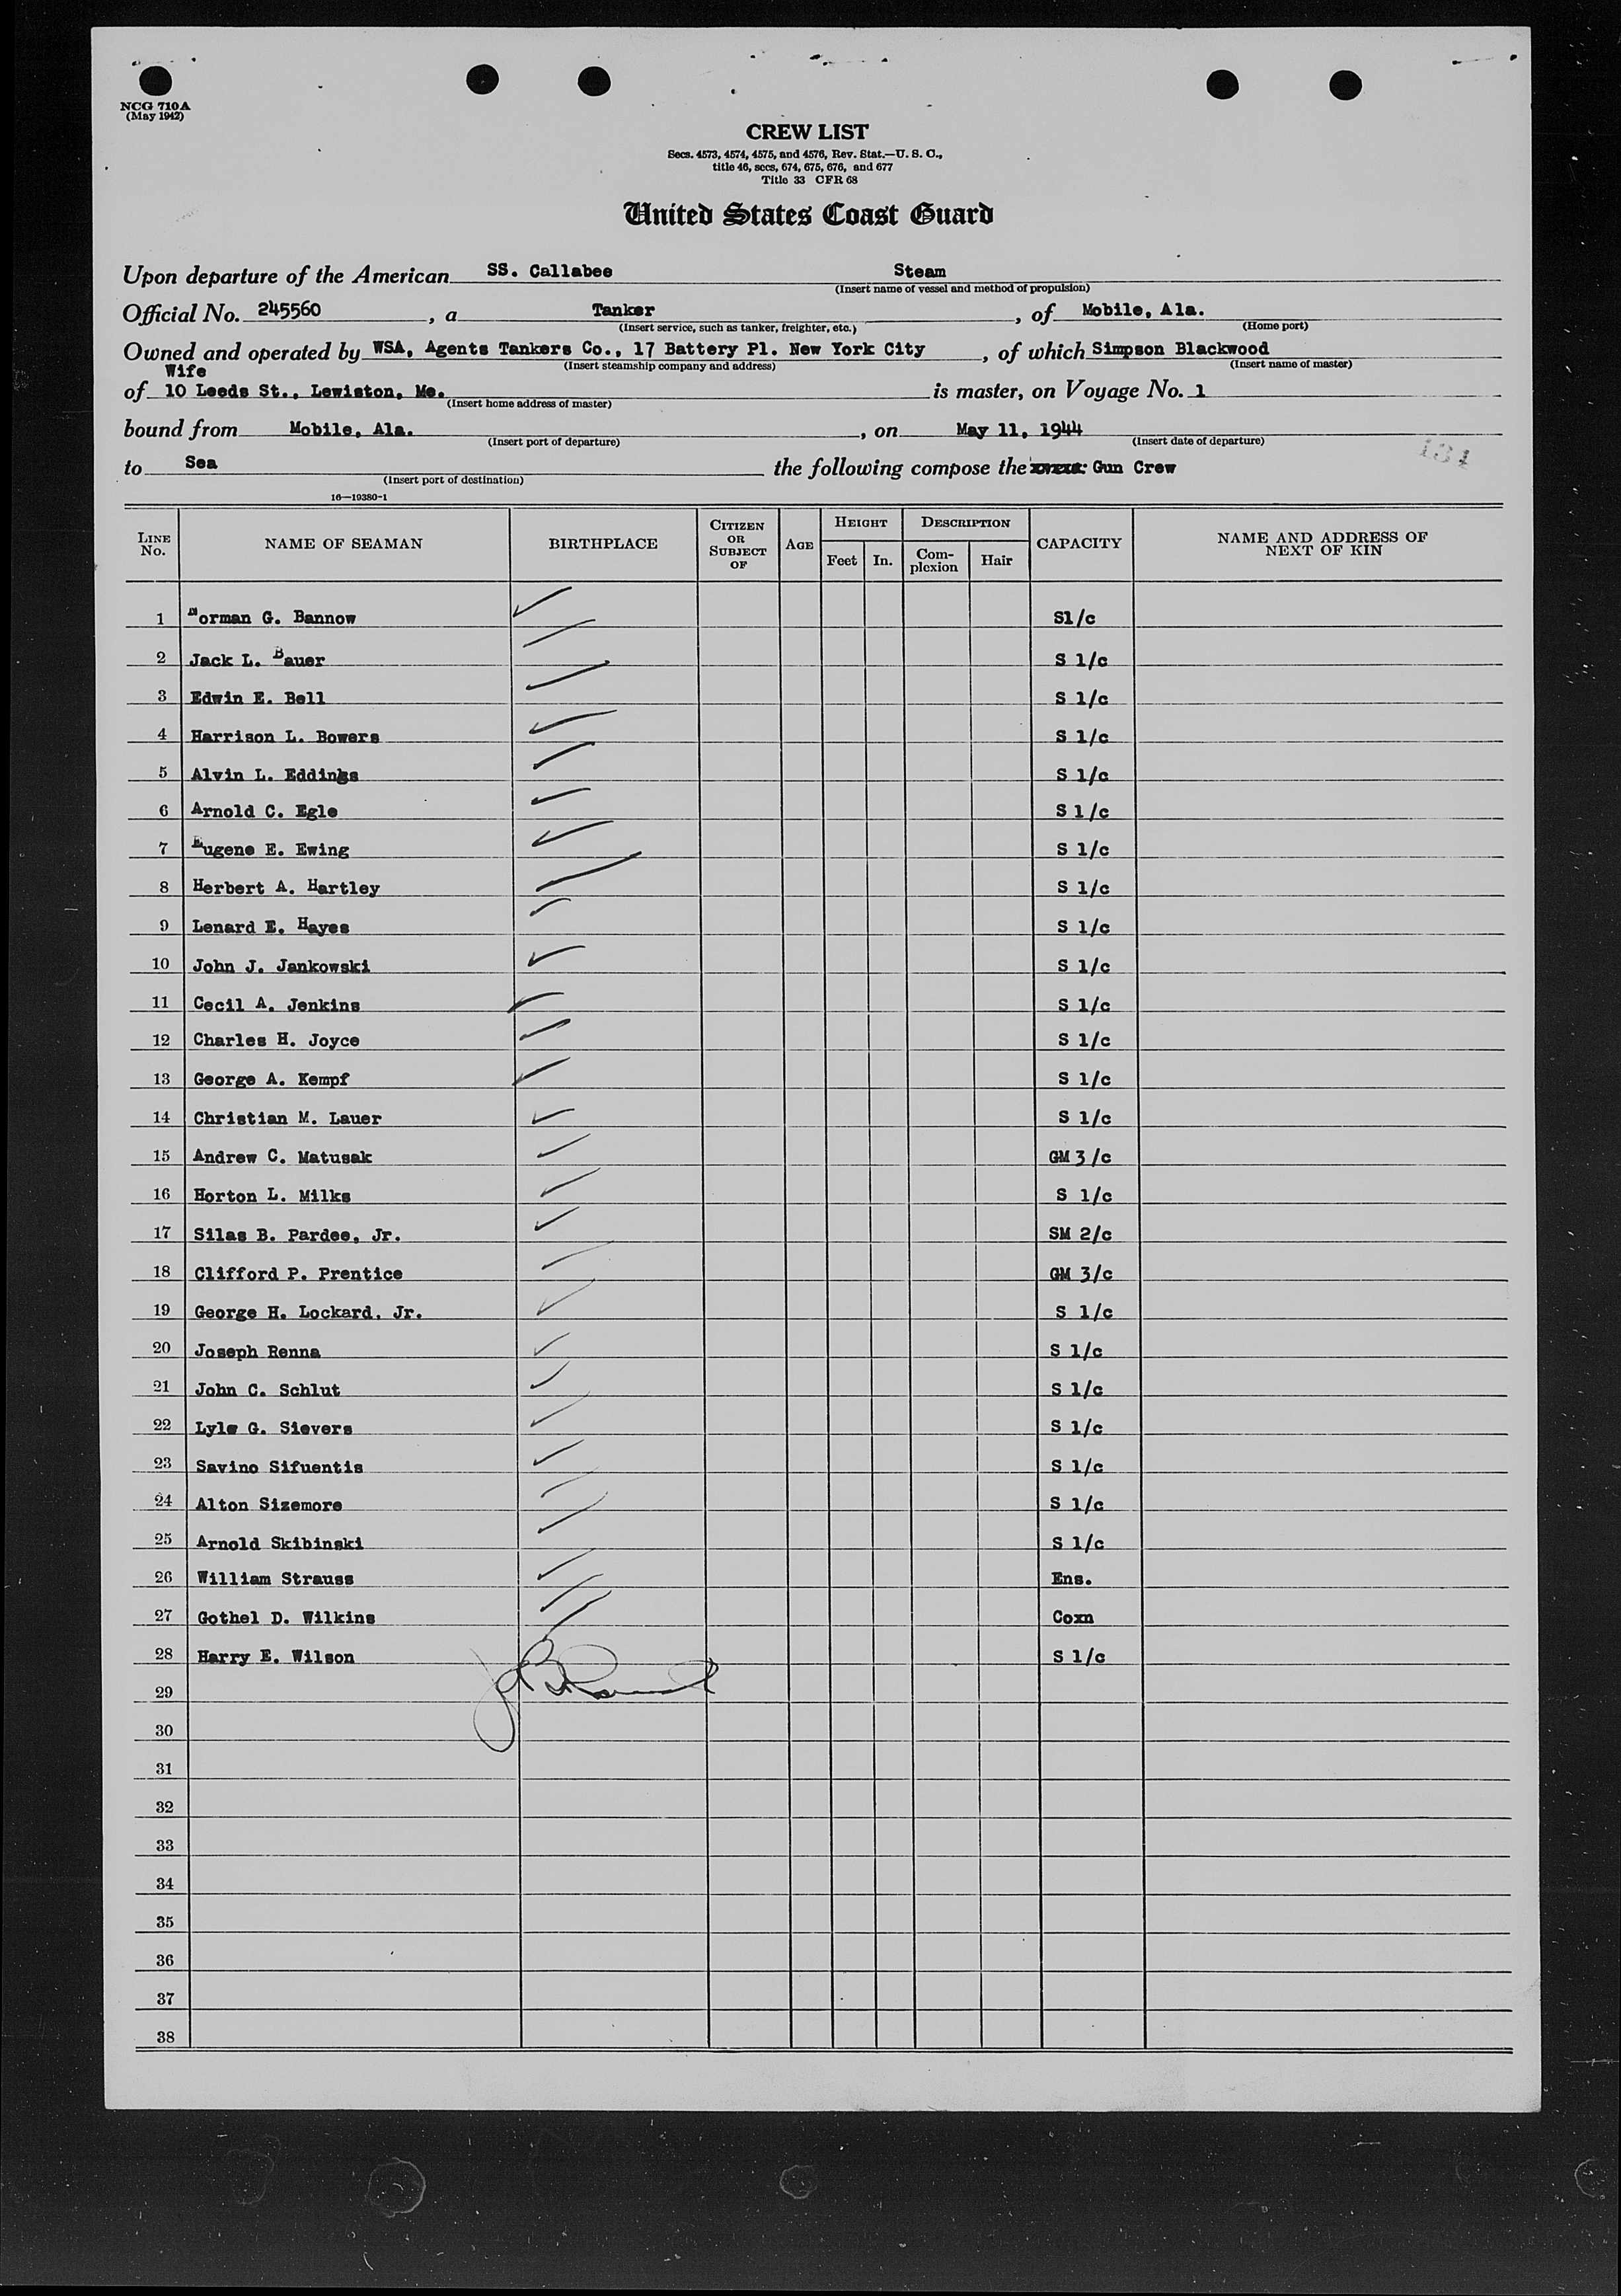 NCG 710A
(May 1942)
CREW LIST
Secs. 4573, 4574, 4575, and 4576, Rev. Stat.—U. S. C.,
title 46, secs, 674, 675, 676, and 677
Title 33 CFR 68
United States Coast Guard
Upon departure of the American SS. Callabee Steam
(Insert name of vessel and method of propulsion)
Official No. 245560, a Tanker, of Mobile, Ala.
(Insert service, such as tanker, freighter, etc.) (Home port)
Owned and operated by WSA, Agents Tankers Co., 17 Battery Pl. New York City, of which Simpson Blackwood
(Insert steamship company and address) (Insert name of master)
Wife
of 10 Leeds St., Lewiston, Me. is master, on Voyage No. 1
(Insert home address of master)
bound from Mobile, Ala., on May 11, 1944
(Insert port of departure) (Insert date of departure)
131
to Sea the following compose the Gun Crew
(Insert port of destination)
16—19380-1
LINE No. NAME OF SEAMAN BIRTHPLACE CITIZEN OR SUBJECT OF AGE HEIGHT Feet In. DESCRIPTION Complexion Hair CAPACITY NAME AND ADDRESS OF NEXT OF KIN
1 Norman G. Bannow S1/c
2 Jack L. Bauer S 1/c
3 Edwin E. Bell S 1/c
4 Harrison L. Bowers S 1/c
5 Alvin L. Eddings S 1/c
6 Arnold C. Egle S 1/c
7 Eugene E. Ewing S 1/c
8 Herbert A. Hartley S 1/c
9 Lenard E. Hayes S 1/c
10 John J. Jankowski S 1/c
11 Cecil A. Jenkins S 1/c
12 Charles H. Joyce S 1/c
13 George A. Kempf S 1/c
14 Christian M. Lauer S 1/c
15 Andrew C. Matusak GM 3/c
16 Horton L. Milks S 1/c
17 Silas B. Pardee, Jr. SM 2/c
18 Clifford P. Prentice GM 3/c
19 George H. Lockard, Jr. S 1/c
20 Joseph Renna S 1/c
21 John C. Schlut S 1/c
22 Lyle G. Sievers S 1/c
23 Savino Sifuentis S 1/c
24 Alton Sizemore S 1/c
25 Arnold Skibinski S 1/c
26 William Strauss Ens.
27 Gothel D. Wilkins Coxn
28 Harry E. Wilson S 1/c
29
30
31
32
33
34
35
36
37
38